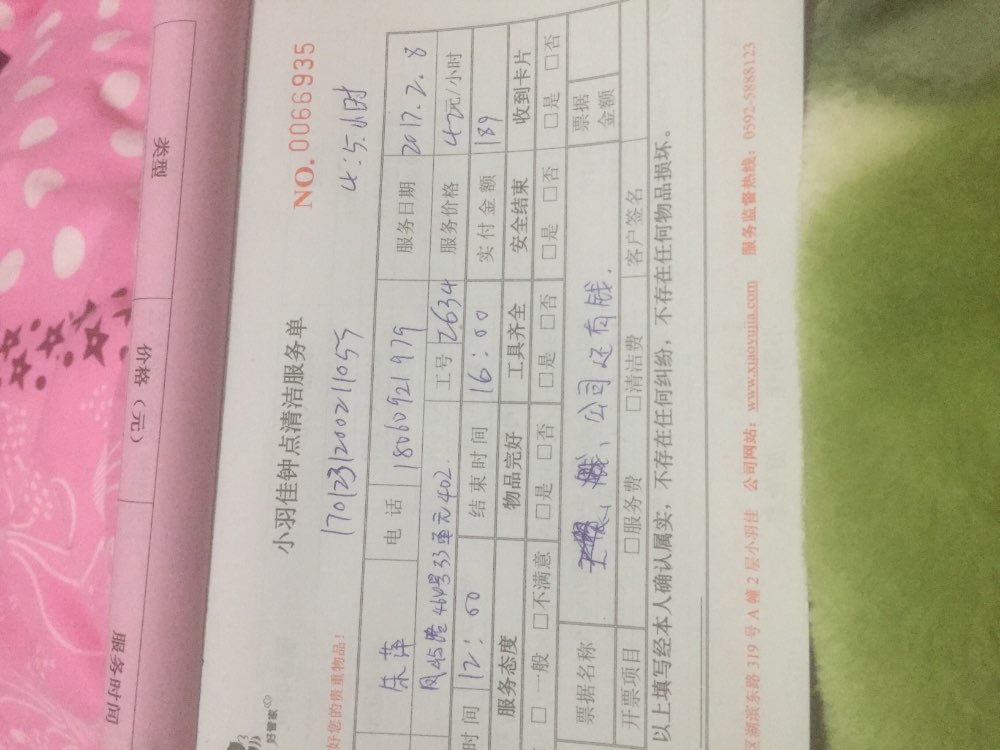 类型
价格（元）
服务时间
NO. 0066935
小羽佳钟点清洁服务单
好管家
好您的贵重物品！
1701231200211055
4:5小时
朱萍
电 话
18060921979
服务日期
2017.2.8
464号33单元402.
工号
2634
服务价格
42元/小时
时间
12:00
结束时间
16:00
实付金额
189
服务态度
物品完好
工具齐全
安全结束
收到卡片
□ 一般 □不满意
□是 □否
□是 □否
□是 □否
□是 □否
票据名称
公司还有钱.
票据
金额
开票项目
□服务费
□清洁费
客户签名
以上填写经本人确认属实，不存在任何纠纷，不存在任何物品损坏。
区湖滨东路 319 号 A 幢 2 层小羽佳 公司网站：www.xiaoyujia.com 服务监督热线：0592-5888123